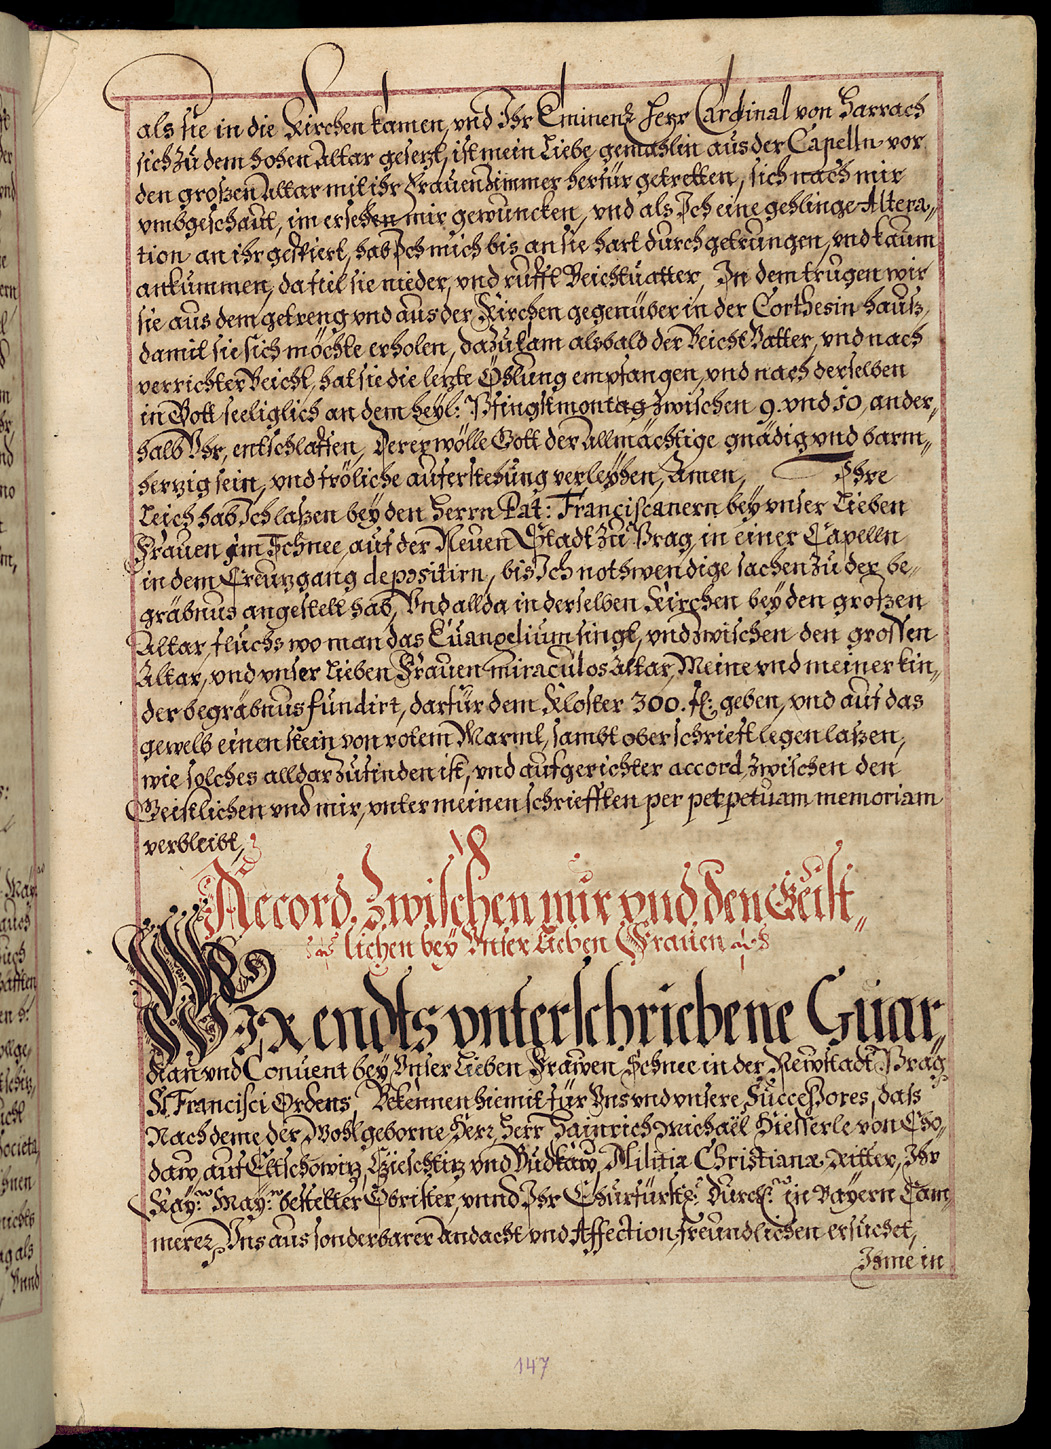 als sie in die Kirchen kamen, vnd Ihr Eminenz Herr Cardinal von Harrach
sich zu dem hohen Altar gesezt, ist mein Liebe gemahlin aus der Capelln vor
den großen Altar mit ihr Frauenzimmer herfür getretten, sich nach mir
vmbgeschaut, im ersehen mir gewuncken, vnd als Ich eine gehlinge Altera„
tion an ihr gespiert, hab Ich mich bis an sie hart durchgetrungen, vnd kaum
ankummen, da fiel sie nieder, vnd rufft Beichtuatter, In dem trugen wir
sie aus dem getreng vnd aus der Kirchen gegenüber in der Corthesin hauß,
damit sie sich möchte erholen, dazu kam alsbald der Beicht Vatter, vnd nach
verrichter Beicht, hat sie die lezte Öhlung empfangen, vnd nach derselben
in Gott seeliglich an dem heyl: Pfingstmontag zwischen 9. vnd 10, ander„
halb Vhr, entschlaffen, Derer wölle Gott der Allmächtige gnädig vnd barm„
herzig sein, vnd fröliche auferstehung verleyhen, Amen, Ihre
Leich hab Ich laßen bey den Herrn Pat: Franciscanern bey vnser Lieben
Frauen im Schnee auf der Neuen Stadt zu Prag, in einer Capelln
in dem Creuzgang depositirn, bis Ich nothwendige sachen zu der be„
gräbnus angestelt hab, Vnd allda in derselben Kirchen bey den großen
Altar, fluchs wo man das Euangelium singt, vnd zwischen den grossen
Altar, vnd vnser Lieben Frauen miraculos Altar, Meine vnd meiner kin„
der begräbnus fundirt, darfür dem Kloster 300. fl: geben, vnd auf das
gewelb einen stein von rotem Marml, sambt oberschrieft legen laßen,
wie solches alldar zufinden ist, vnd aufgerichter accord zwischen den
Geistlichen vnd mir, vnter meinen schriefften per perpetuam memoriam
verbleibt,
Accord zwischen mir vnd den Geist„
lichen bey Vnser Lieben Frauen
Wir endts vnterschriebene Guar„
dian vnd Conuent bey Vnser Lieben Frawen Schnee in der Newstadt Prag
St. Francisci Ordens, Bekennen hiemit für Vns vnd vnsere Successores, dass
Nach deme der Wohlgeborne Herr Herr Hainrich Michaël Hiesserle von Cho„
daw, auf Eltschowiz, Czieschtiz vnd Budkaw, Militiæ Christianæ Ritter, Ihr
Kay: May: bestelter Obrister, vnnd Ihr Churfürstl: Durchl: in Bayern Cam„
merer, Vns aus sonderbarer Andacht vnd Affection, freundlichen ersuchet,
Ihme in
147